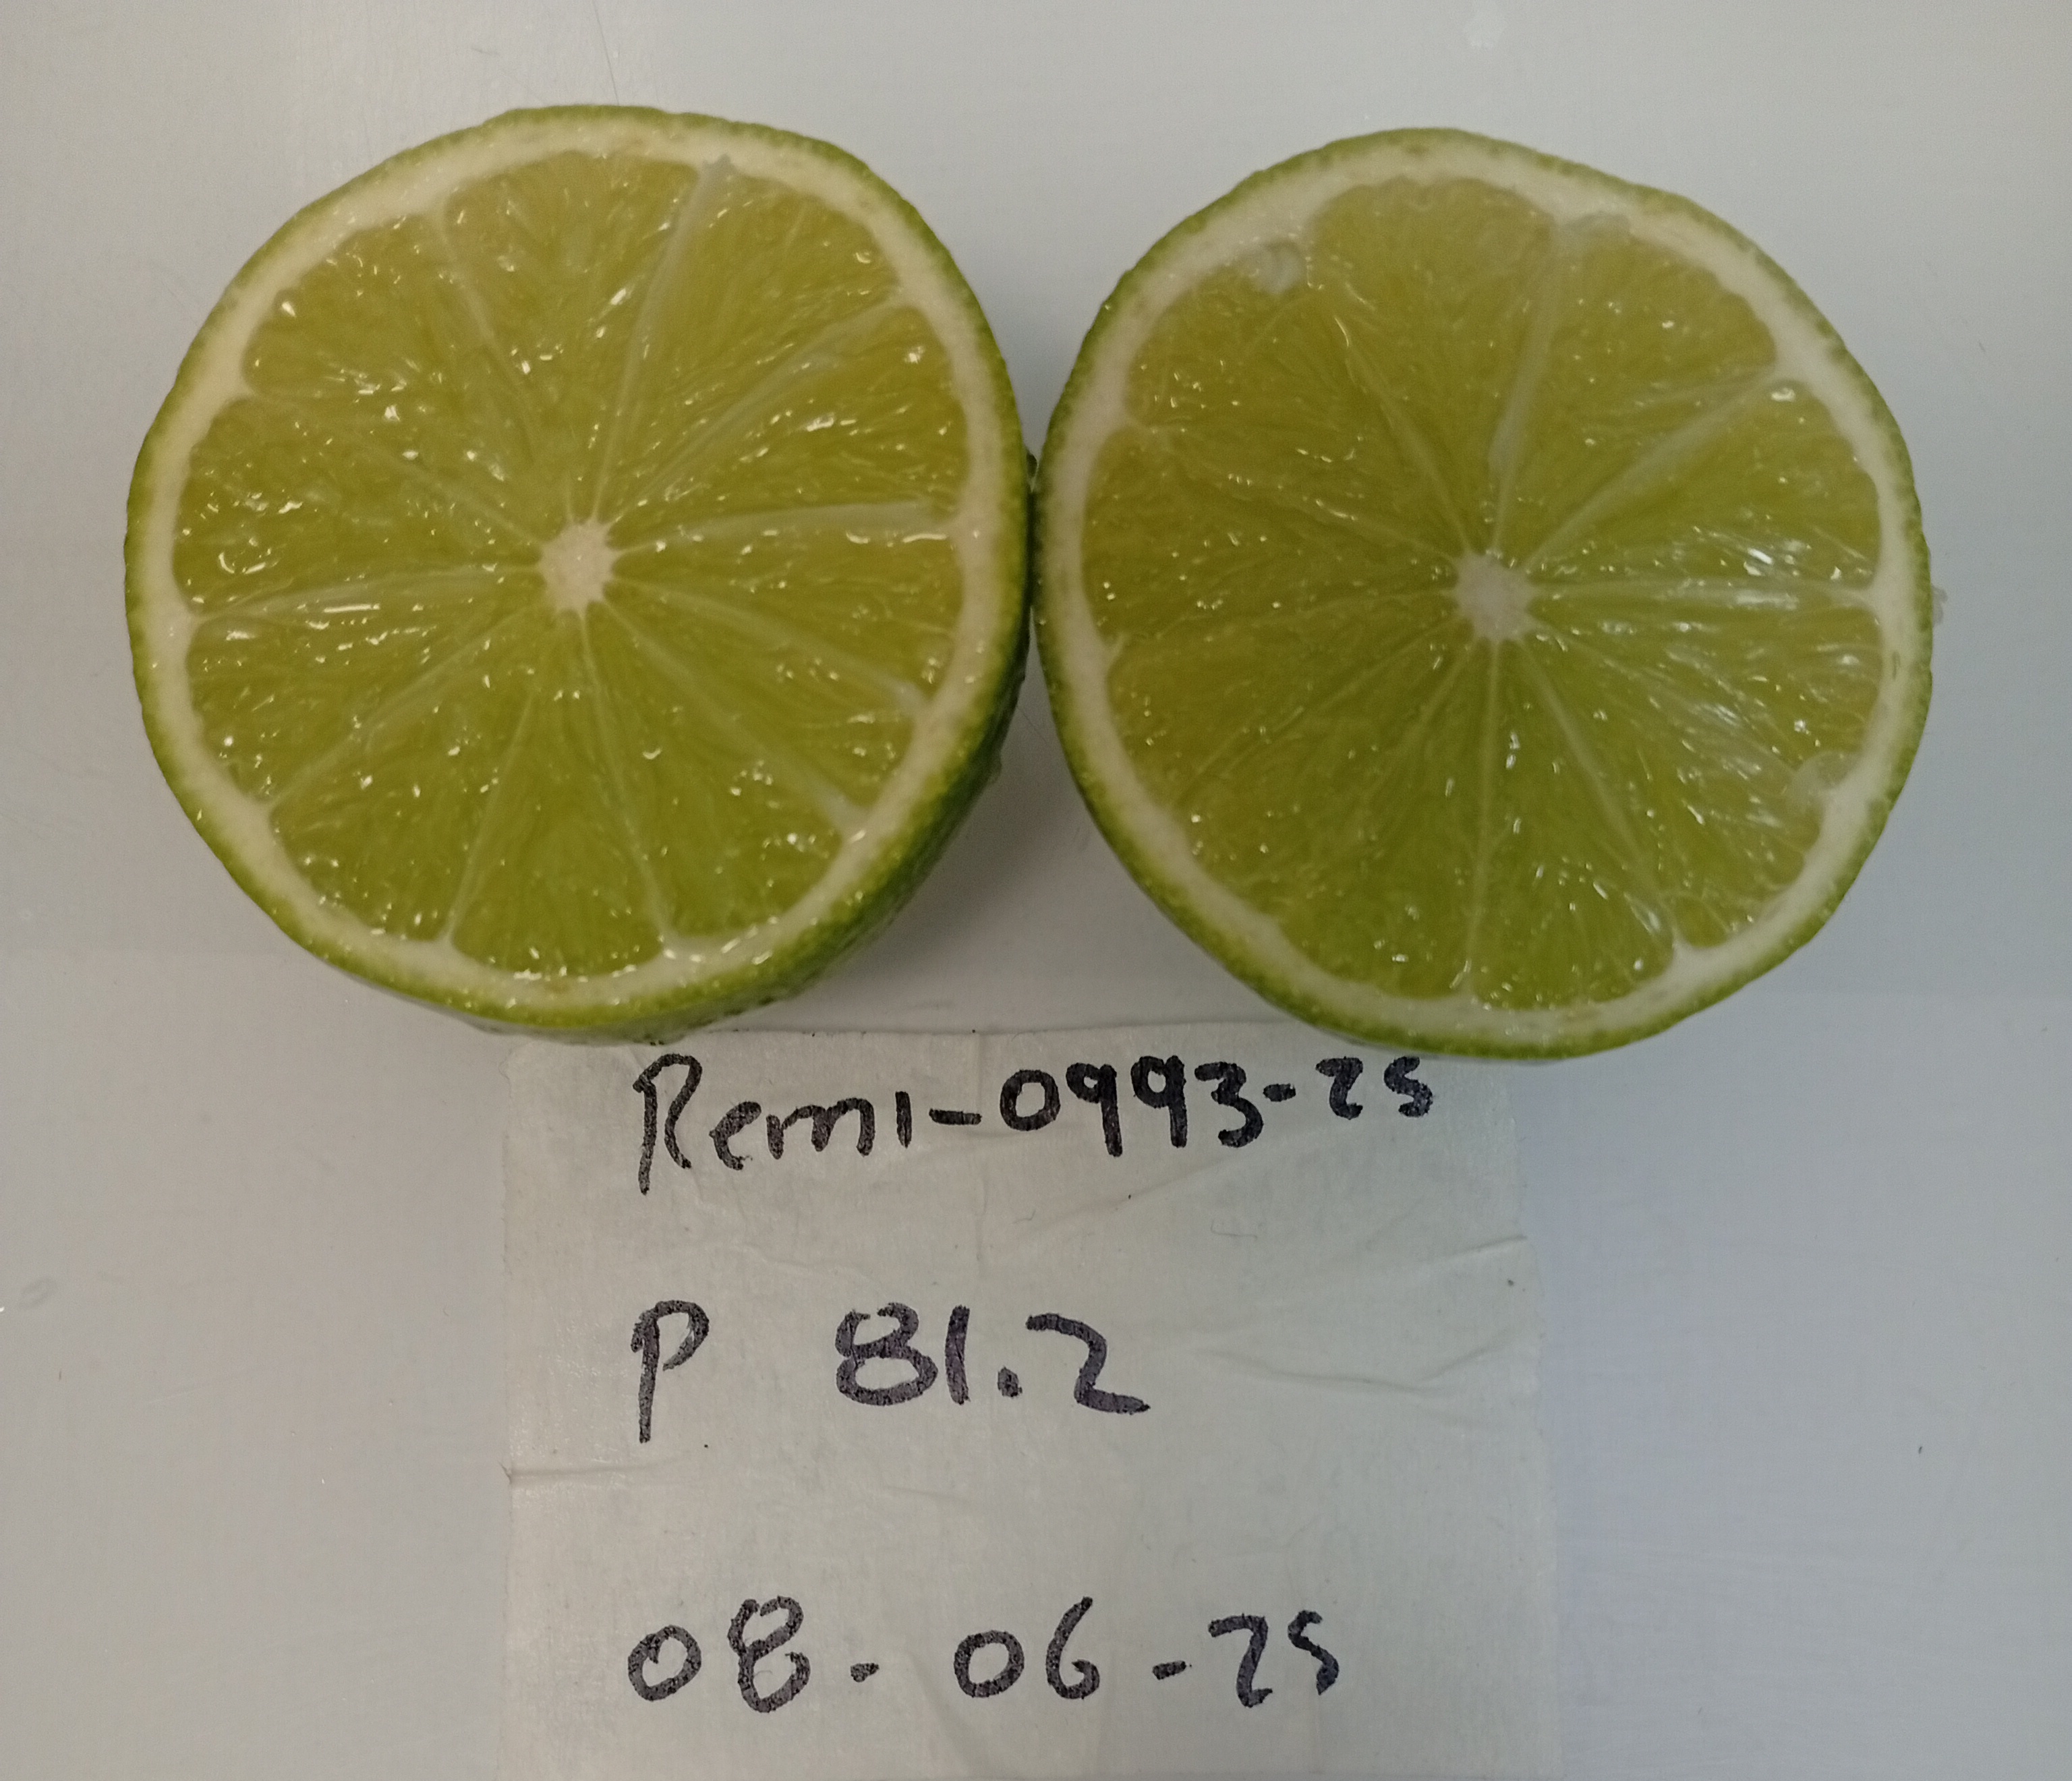 Remi-0993-25
P 81.2
08-06-25